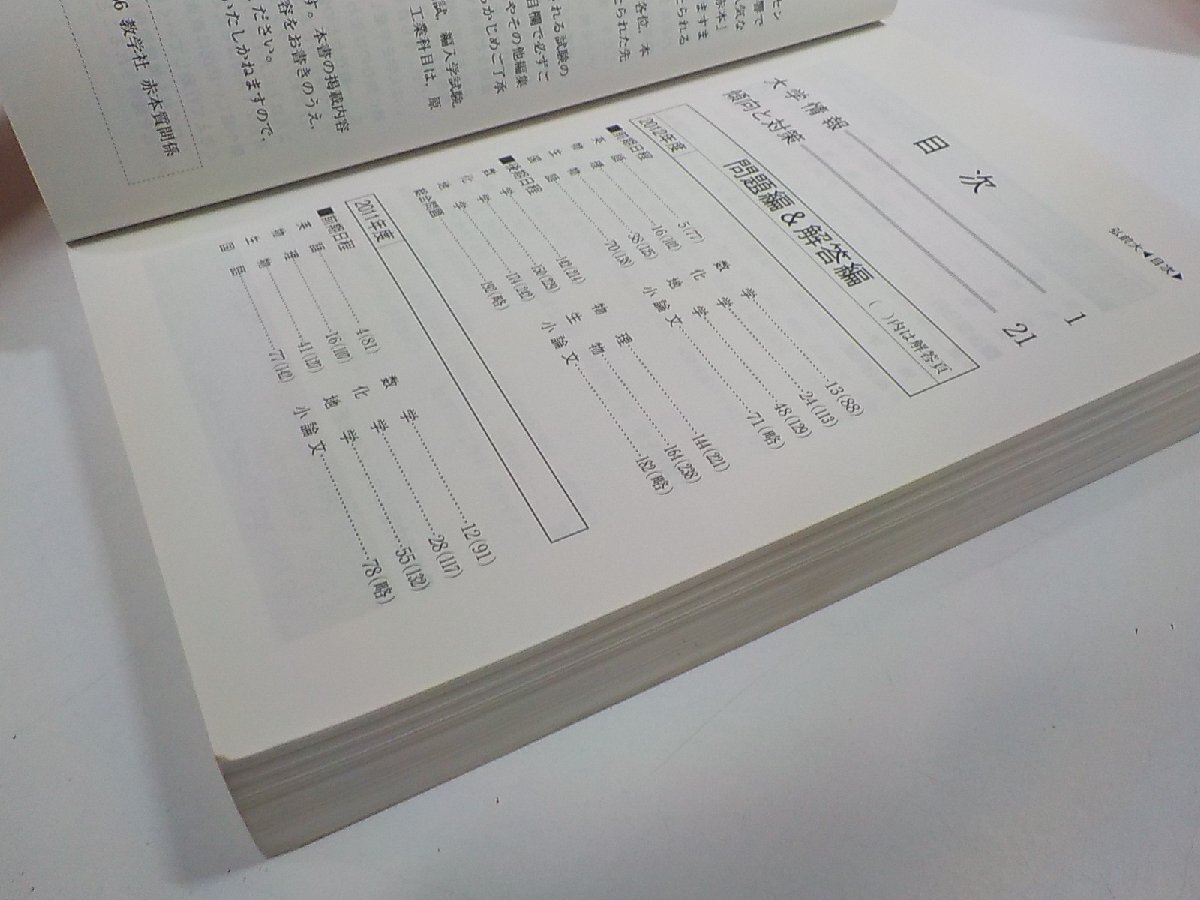 セン
赤本」
ますま
とられる
各位、本
とられた先
れる試験の
目欄で必ずご
やその他編集
らかじめご了承
試，編入学試験，
工業科目は，原
す。本書の掲載内容
容をお書きのうえ，
ださい。
いたしかねますので，
6 教学社 赤本質問係
弘前大◀目次▶
目次
大学情報 1
傾向と対策 21
問題編&解答編 ( )内は解答頁
2012年度
■前期日程
英語 5(77) 数学 13(88)
物理 16(102) 化学 24(113)
生物 38(125) 地学 48(129)
国語 70(138) 小論文 71(略)
■後期日程
数学 142(214) 物理 144(221)
化学 150(229) 生物 164(238)
地学 179(242) 小論文 182(略)
総合問題 190(略)
2011年度
■前期日程
英語 4(81) 数学 12(91)
物理 16(107) 化学 28(117)
生物 41(127) 地学 55(132)
国語 77(142) 小論文 78(略)